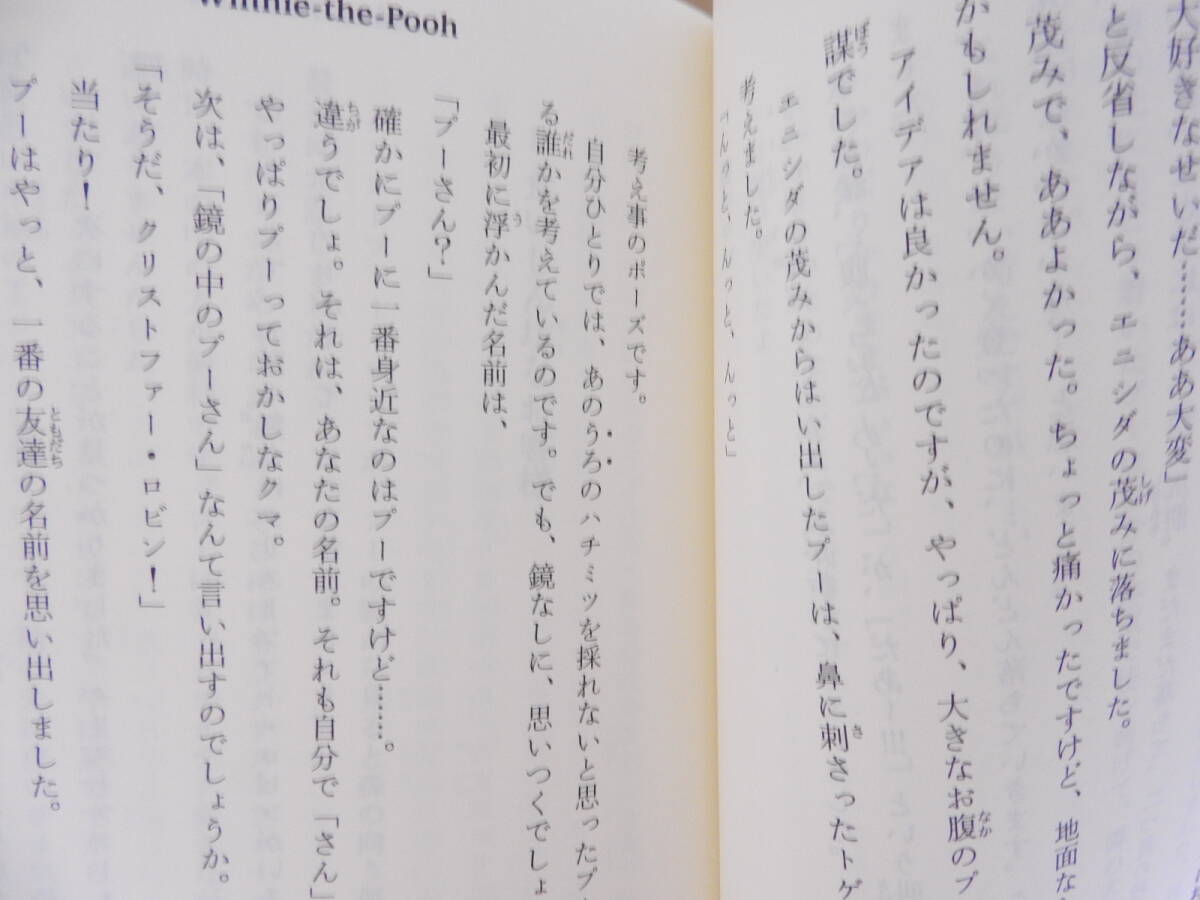 大好きなせいだ……ああ大変」
と反省しながら、エニシダの茂みに落ちました。
茂みで、ああよかった。ちょっと痛かったですけど、地面な
かもしれません。
アイデアは良かったのですが、やっぱり、大きなお腹のプ
謀でした。
エニシダの茂みからはい出したプーは、鼻に刺さったトゲ
考えました。
「んっと、んっと、んっと」
Winnie-the-Pooh
考え事のポーズです。
自分ひとりでは、あのうろのハチミツを採れないと思ったプ
る誰かを考えているのです。でも、鏡なしに、思いつくでしょ
最初に浮かんだ名前は、
「プーさん？」
確かにプーに一番身近なのはプーですけど……。
違うでしょ。それは、あなたの名前。それも自分で「さん」
やっぱりプーっておかしなクマ。
次は、「鏡の中のプーさん」なんて言い出すのでしょうか。
「そうだ、クリストファー・ロビン！」
当たり！
プーはやっと、一番の友達の名前を思い出しました。